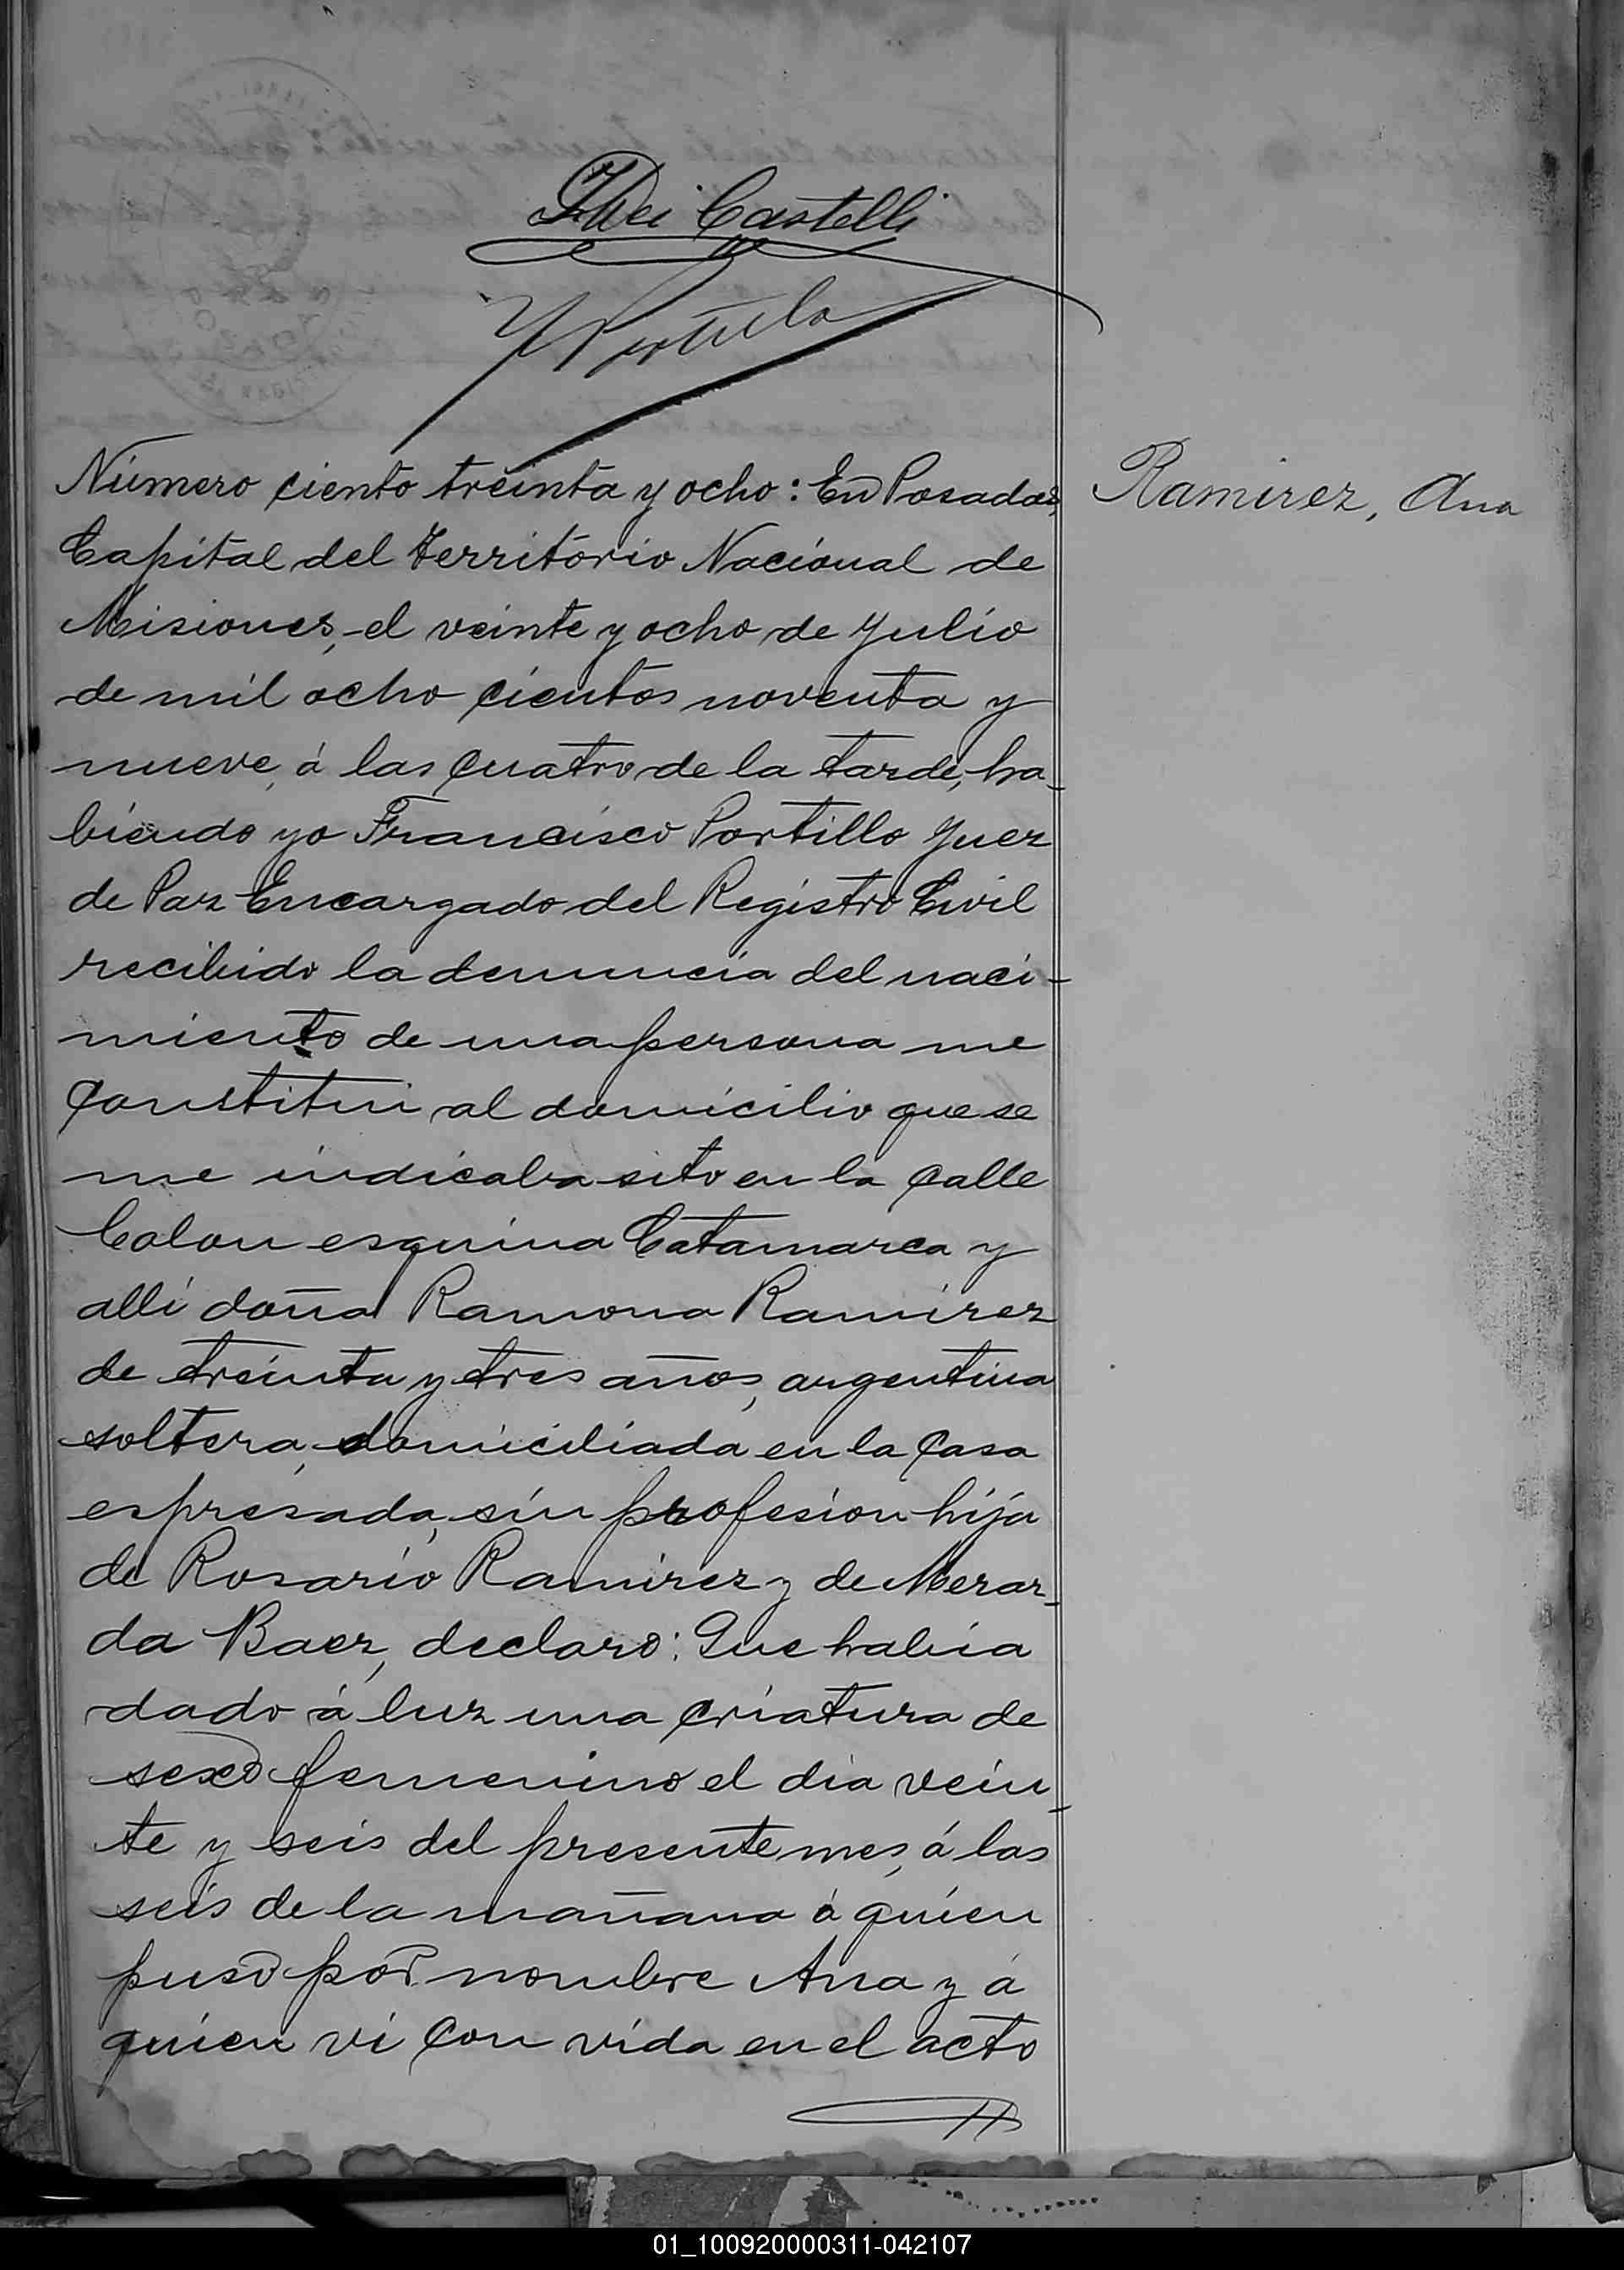 Dei Castelli
Número ciento treinta y ocho: En Posadas,
Ramirez, Ana
Capital del Territorio Nacional de
Misiones, el veinte y ocho de Julio
de mil ocho cientos noventa y
nueve, á las cuatro de la tarde, ha-
biendo yo Francisco Portillo Juez
de Paz Encargado del Registro Civil
recibido la denuncia del naci-
miento de una persona me
constitui al domicilio que se
me indicaba sito en la calle
Colon esquina Catamarca y
alli doña Ramona Ramirez
de treinta y tres años, argentina
soltera, domiciliada en la casa
espresada, sin profesion hija
de Rosario Ramirez y de Merar-
da Baez, declaro: Que habia
dado á luz una criatura de
sexo femenino el dia vein-
te y seis del presente mes, á las
seis de la mañana á quien
puso por nombre Ana y á
quien vi con vida en el acto
01_100920000311-042107